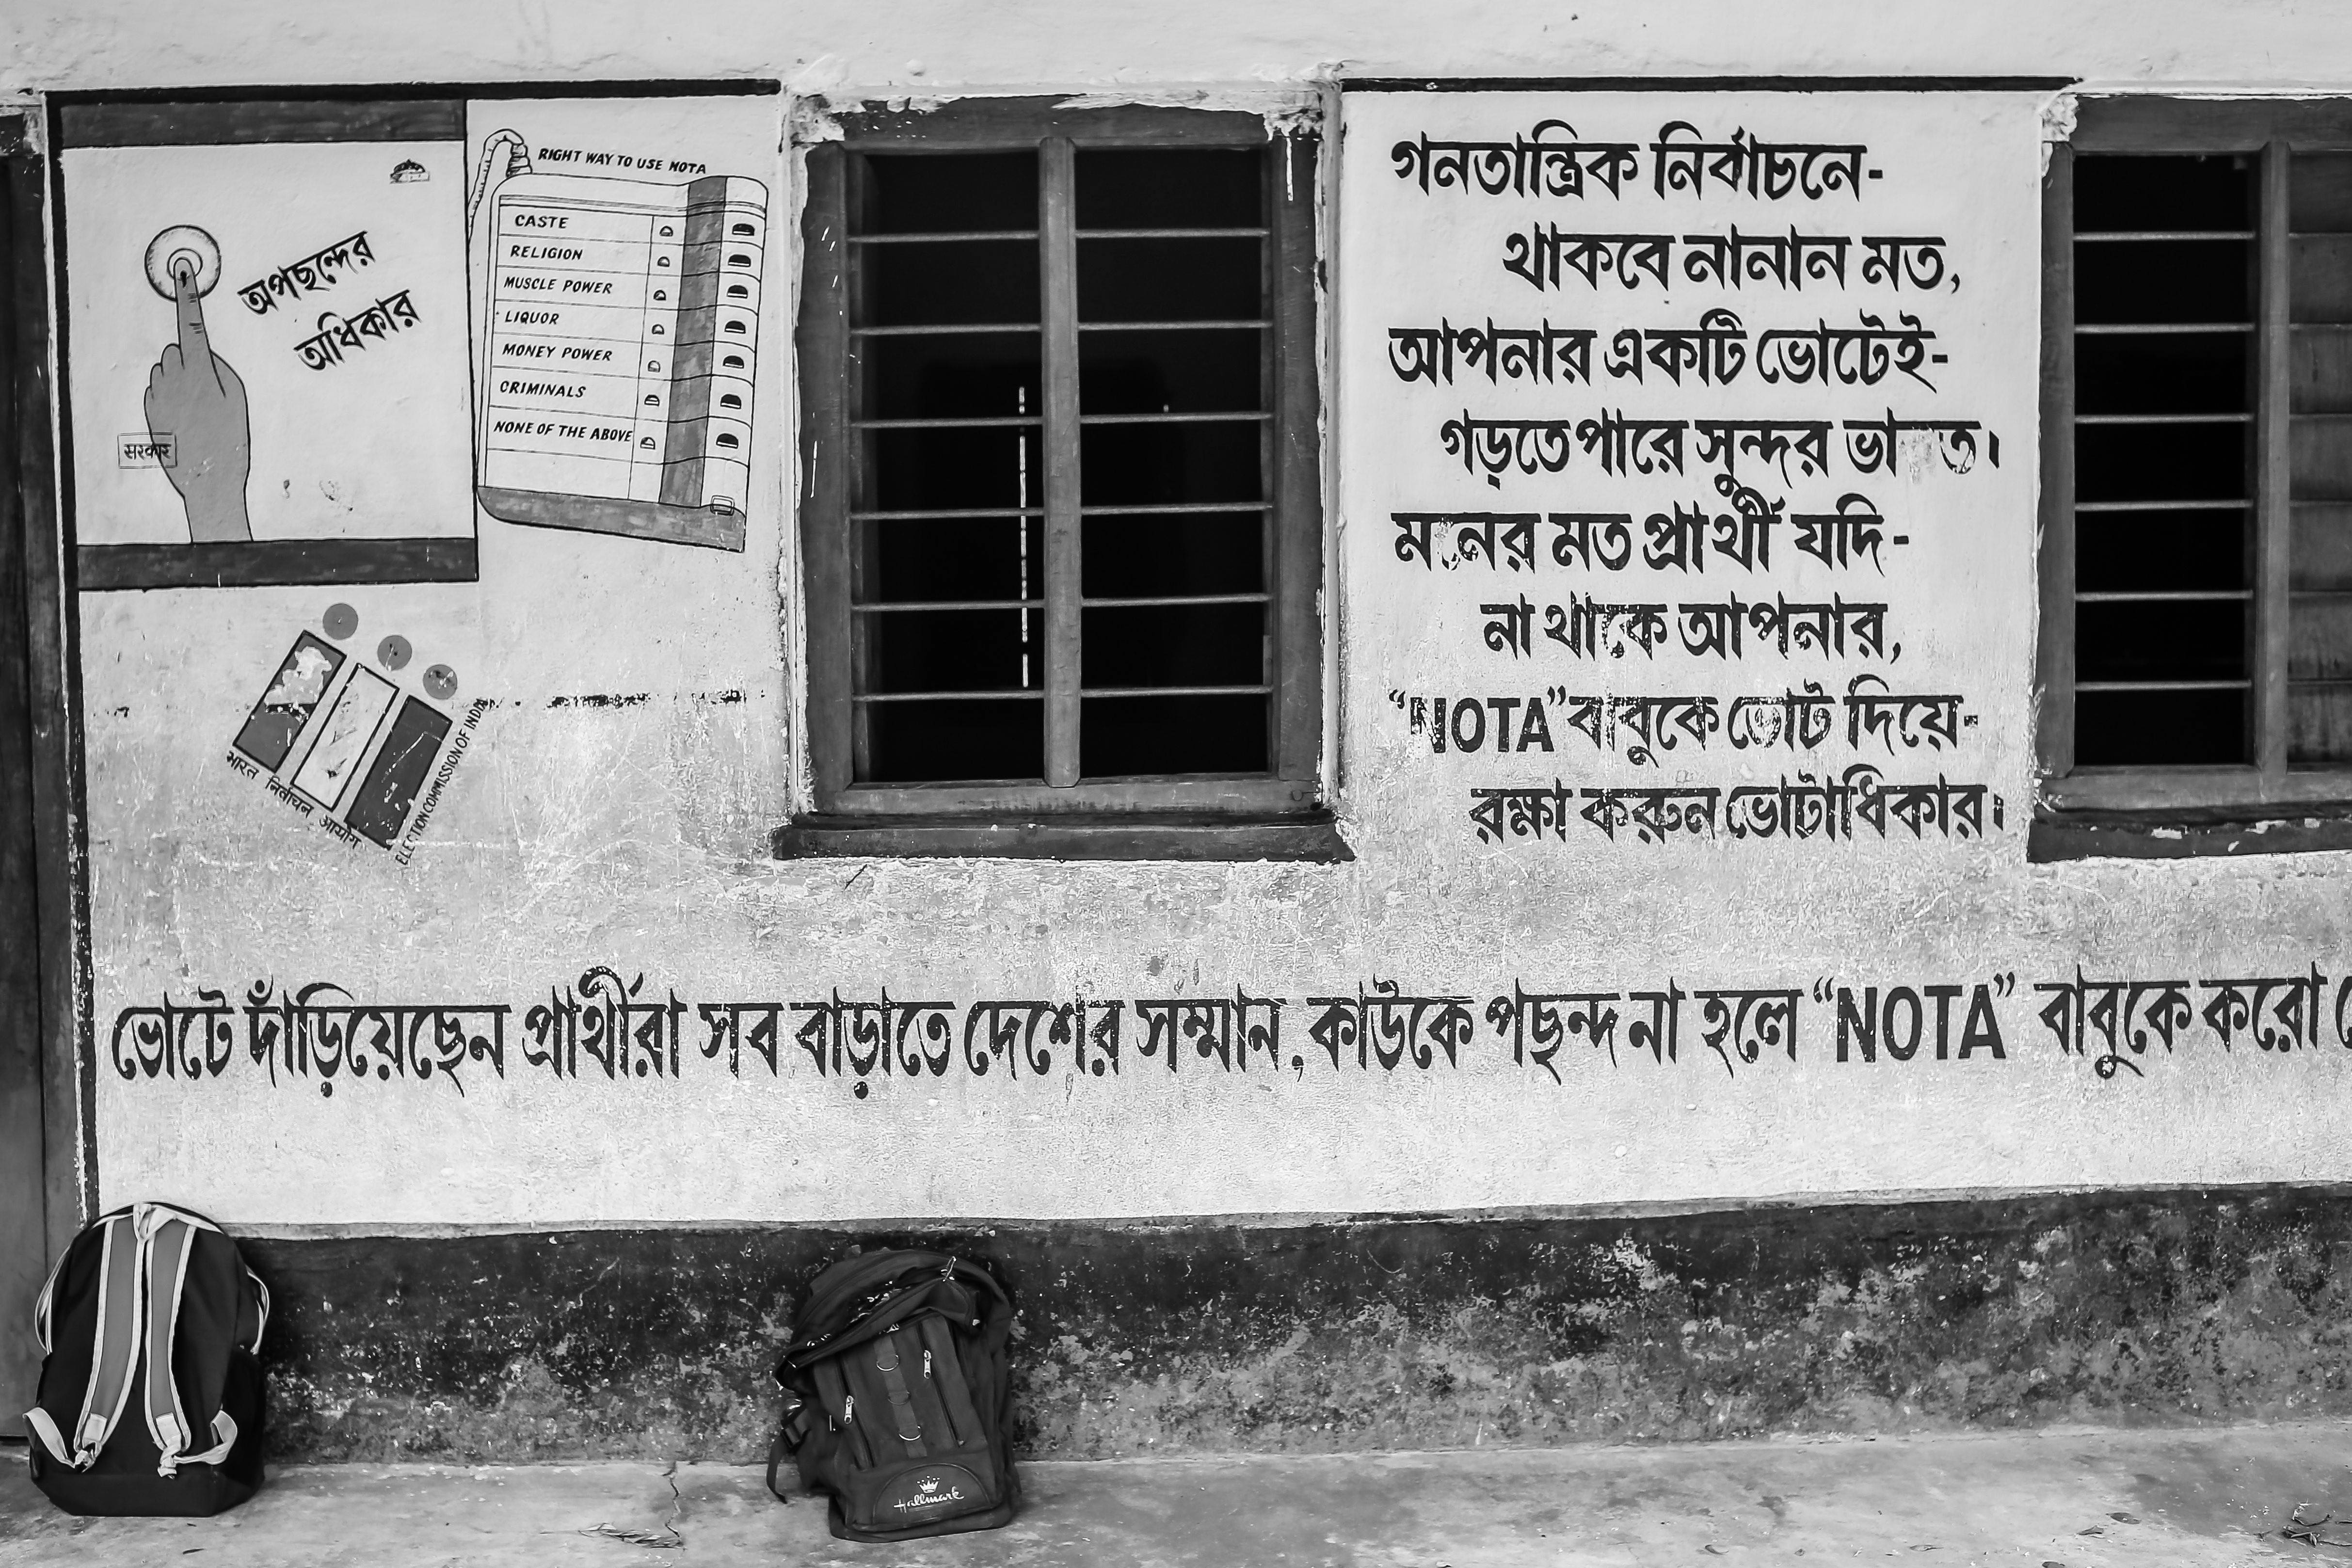 অপছন্দের
অধিকার
सरकार
RIGHT WAY TO USE NOTA
CASTE
RELIGION
MUSCLE POWER
LIQUOR
MONEY POWER
CRIMINALS
NONE OF THE ABOVE
भारत निर्वाचन आयोग
ELECTION COMMISSION OF INDIA
গনতান্ত্রিক নির্বাচনে-
থাকবে নানান মত,
আপনার একটি ভোটেই-
গড়তে পারে সুন্দর ভারত।
মনের মত প্রার্থী যদি-
না থাকে আপনার,
"NOTA" বাবুকে ভোট দিয়ে-
রক্ষা করুন ভোটাধিকার।
ভোটে দাঁড়িয়েছেন প্রার্থীরা সব বাড়াতে দেশের সম্মান, কাউকে পছন্দ না হলে "NOTA" বাবুকে করো
Hallmark